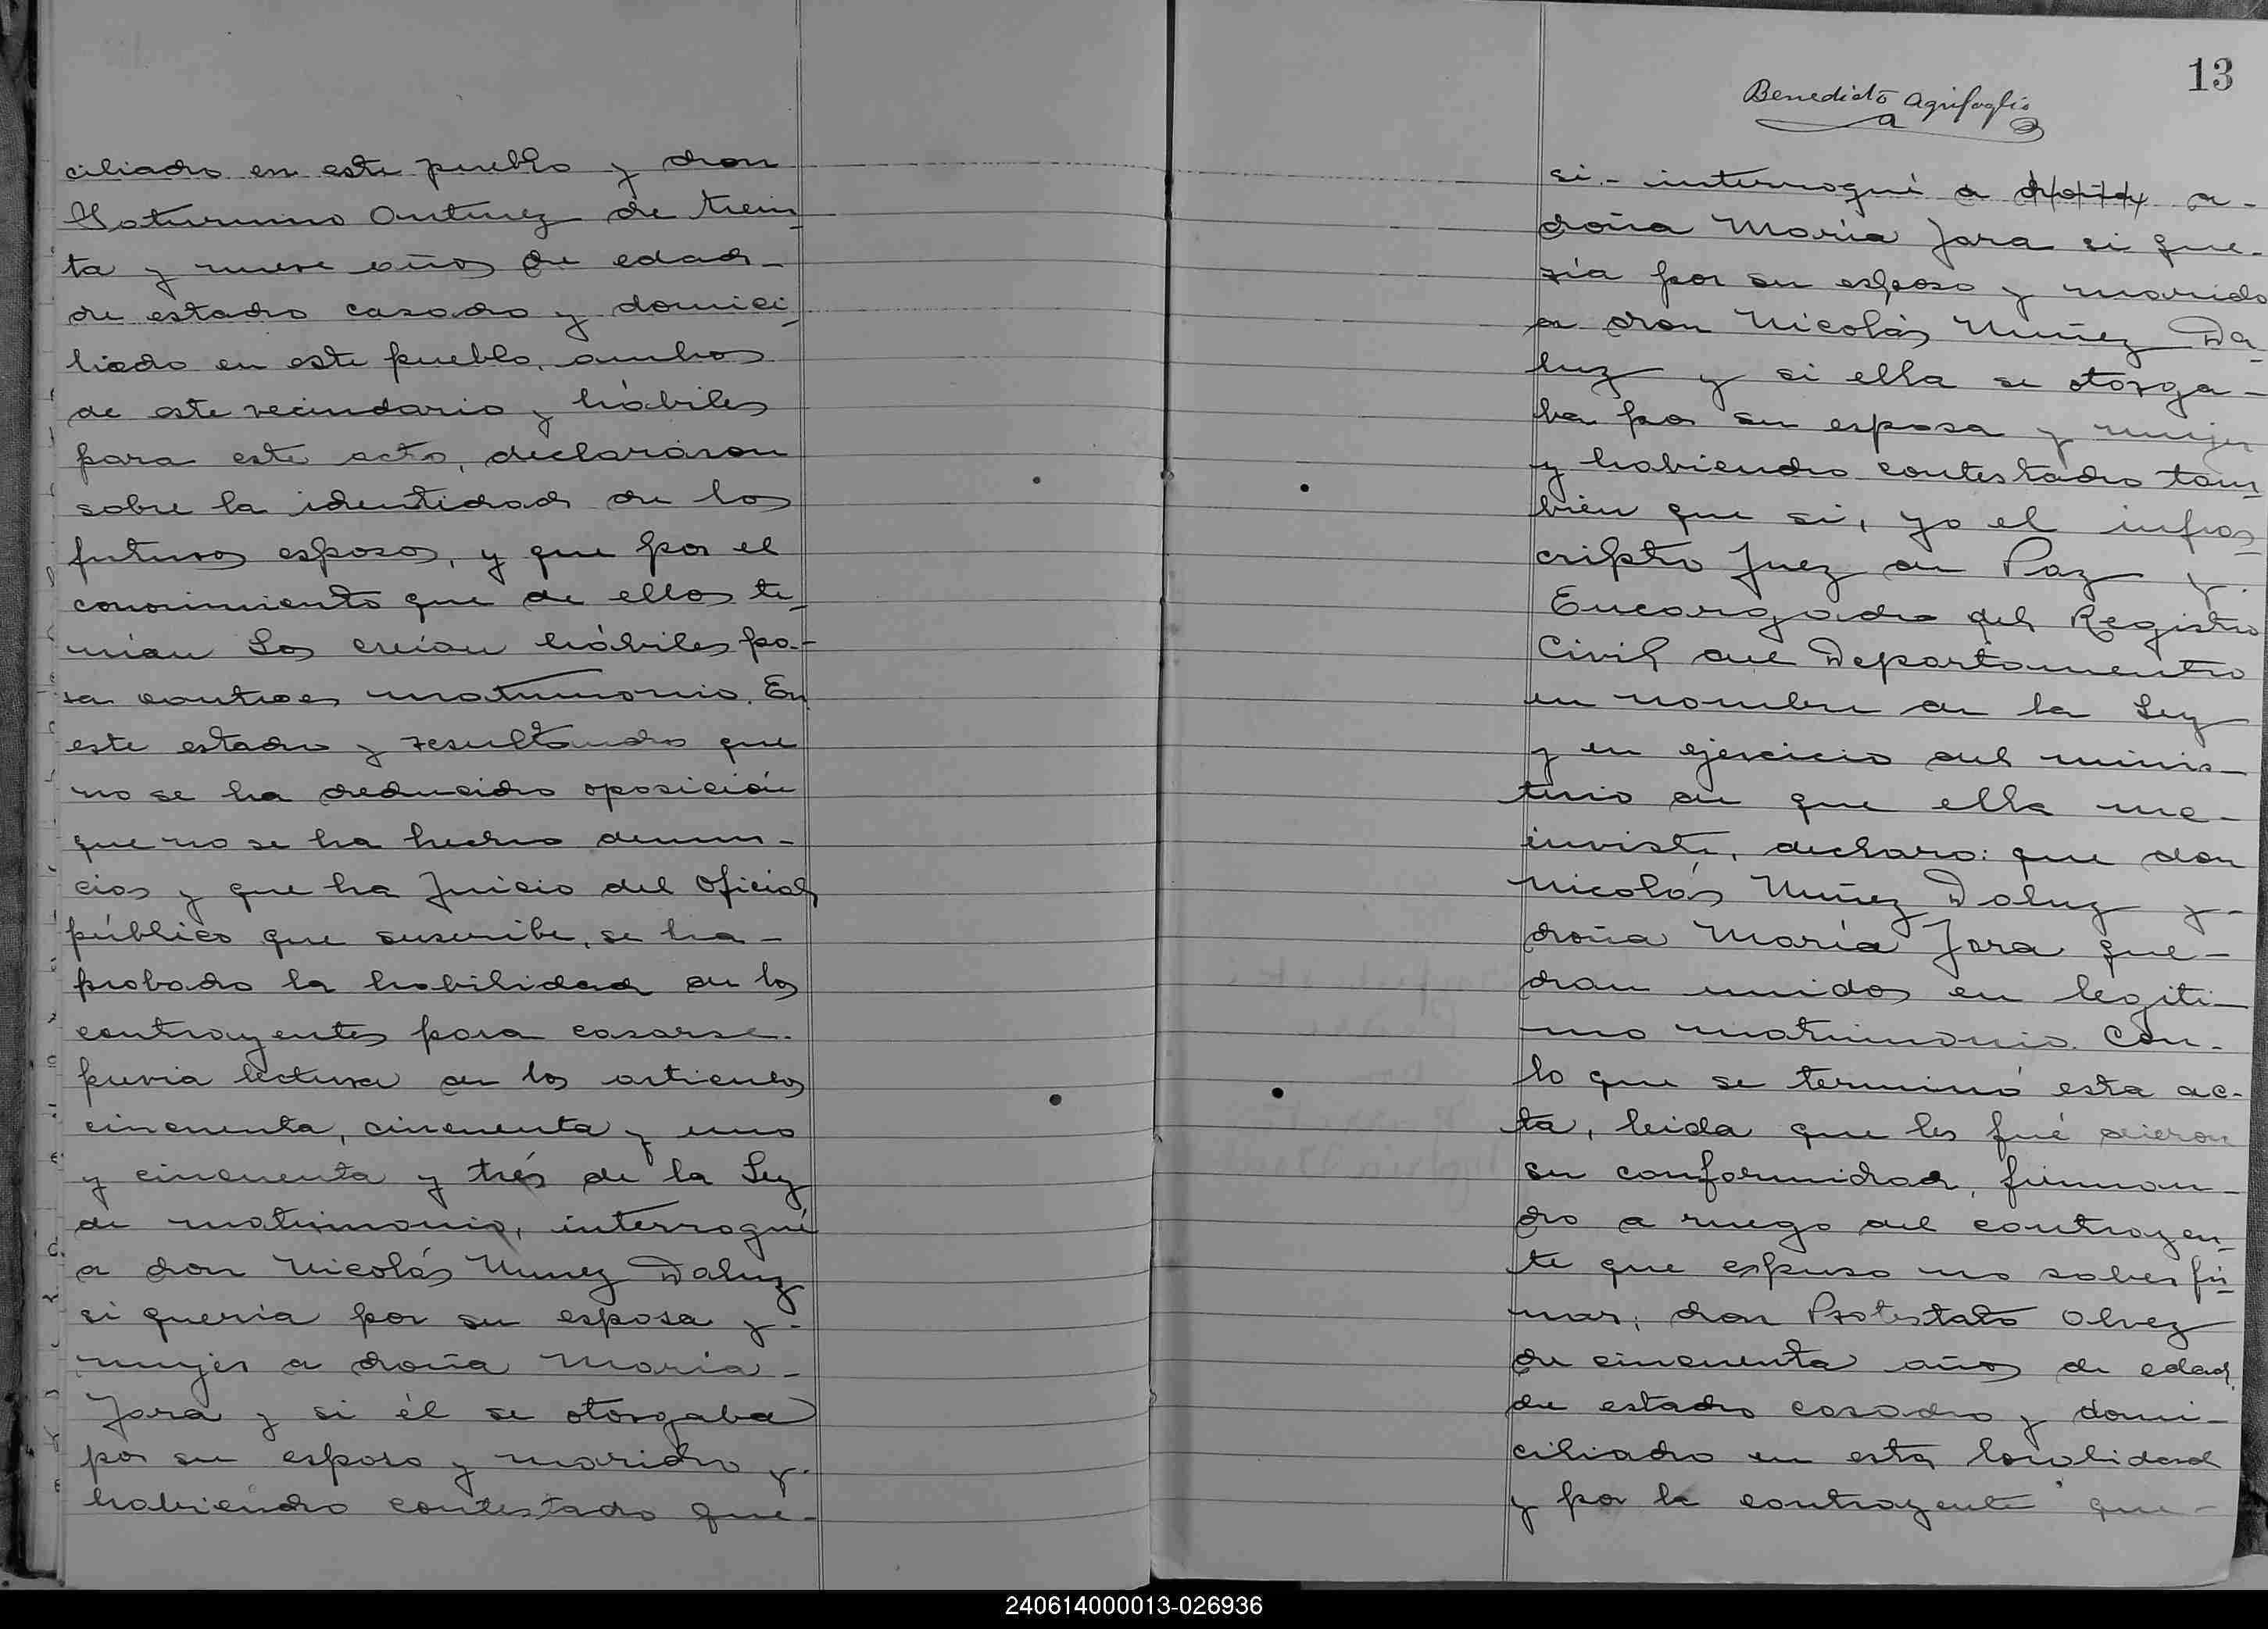 ciliado en este pueblo y don
Saturnino Antunez de trein
ta y nueve años de edad -
de estado casado y domici
liado en este pueblo, ambos
de este vecindario y hábiles
para este acto, declararon
sobre la identidad de los
futuros esposos, y que por el
conocimiento que de ellos te-
nían los creían hábiles pa-
ra contraer matrimonio. En
este estado y resultando que
no se ha deducido oposición
que no se ha hecho denun-
cias y que ha Juicio del Oficial
público que suscribe, se ha -
probado la habilidad de los
contrayentes para casarse.
previa lectura de los artículos
cincuenta, cincuenta y uno
y cincuenta y trés de la Ley
de matrimonio, interrogué
a don Nicolás Nunez Daluz
si queria por su esposa y -
mujer a doña Maria -
Jara y si él se otorgaba
por su esposo y marido y -
habiendo contestado que -
13
Benedicto Agrifoglio
si - interrogué a a -
doña María Jara si que-
ria por su esposo y marido
a don Nicolás Nuñez Da-
luz y si ella se otorga -
ba por su esposa y mujer
y habiendo contestado tam
bién que si, yo el infras
cripto Juez de Paz y
Encargado del Registro
Civil del Departamento
en nombre de la Ley
y en ejercicio del minis -
terio de que ella me -
inviste, declaro: que don
Nicolás Nuñez Daluz y -
doña María Jara que -
dan unidos en legiti -
mo matrimonio. Con -
lo que se terminó esta ac-
ta, leida que les fué dieron
su conformidad, firman -
do a ruego del contrayen-
te que espuso no saber fir
mar, don Protestato Olvez
de cincuenta años de edad,
de estado casado y domi -
ciliado en esta localidad
y por la contrayente que -
240614000013-026936